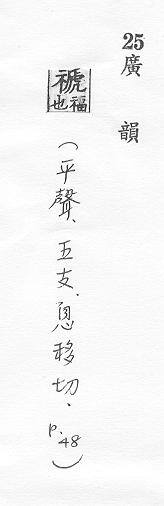 25廣韻
禠福也
(平聲、五支、息移切. p.48)